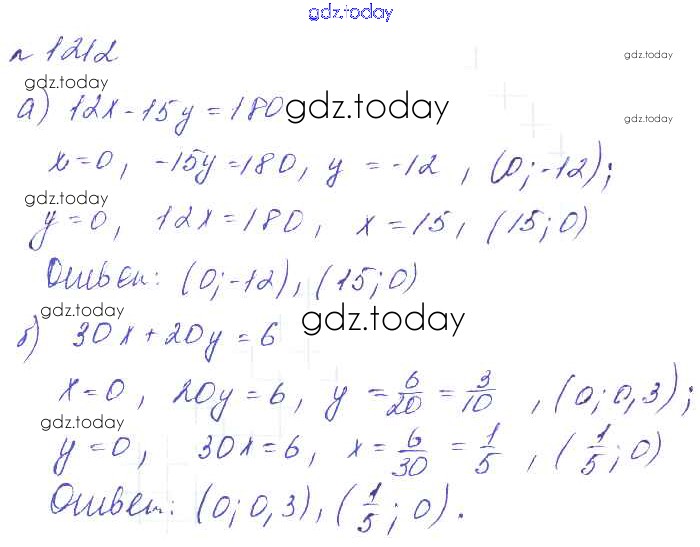 gdz.today
№ 1212
gdz.today
gdz.today
а) 12x - 15y = 180 gdz.today
gdz.today
x = 0, -15y = 180, y = -12, (0; -12);
gdz.today
y = 0, 12x = 180, x = 15, (15; 0)
Ответ: (0; -12), (15; 0)
gdz.today
б) 30x + 20y = 6 gdz.today
x = 0, 20y = 6, y = 6/20 = 3/10, (0; 0,3);
gdz.today
y = 0, 30x = 6, x = 6/30 = 1/5, (1/5; 0)
gdz.today
Ответ: (0; 0,3), (1/5; 0).